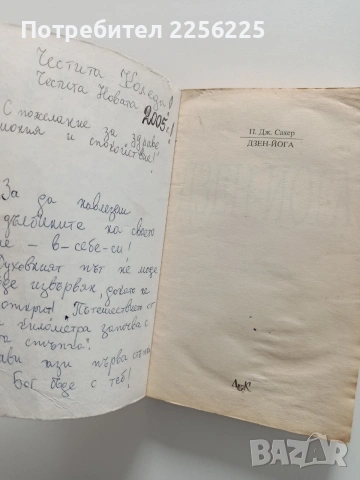 Потребител 2252654
Честита Коледа!
Честита Новата
2005г.!
С пожелание за здраве
и спокойствие!
За да навлезеш
дълбините на своето
– в-себе-си!
Духовният път не може
де извървян, докато не
открит! Пътешествието от
километра започва с
та стъпка".
ави тази първа стъпка
Бог бъде с теб!
П. Дж. Сахер
ДЗЕН-ЙОГА
BAZAR
bg